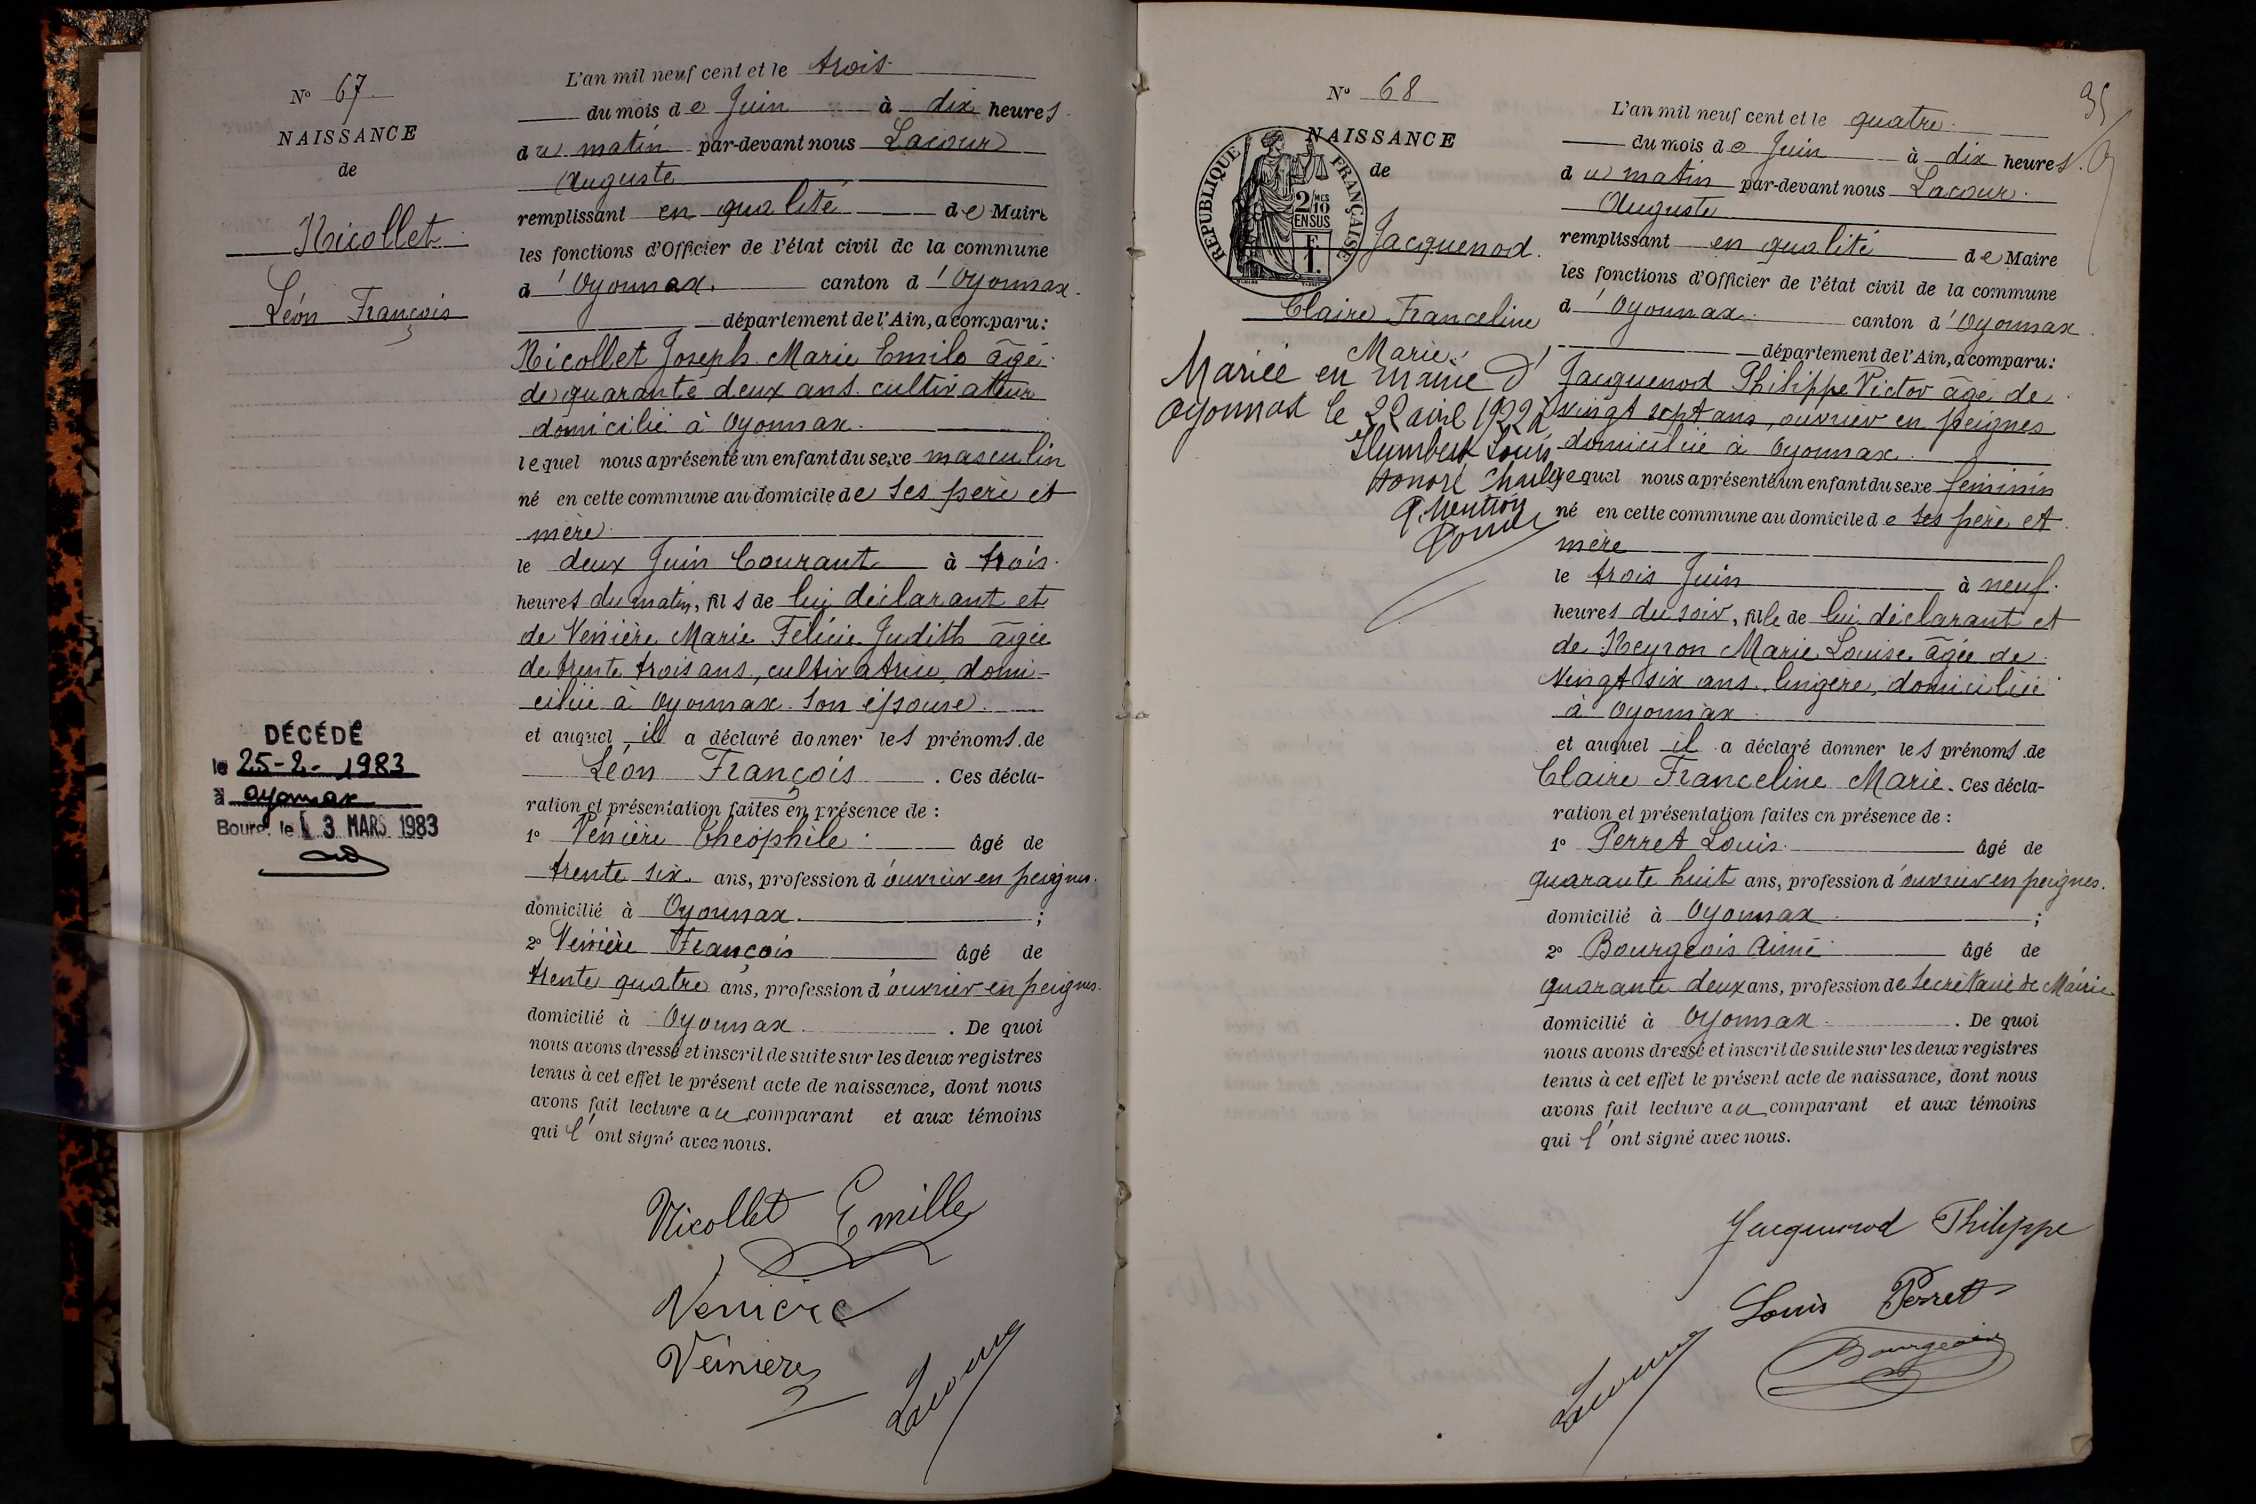 N° 67
NAISSANCE
de
Nicollet
Léon François
DÉCÉDÉ
le 25-2-1983
à Oyonnax
Bourg, le 3 MARS 1983
L'an mil neuf cent et le trois
du mois de Juin à dix heures
du matin par-devant nous Lacour
Auguste
remplissant en qualité de Maire
les fonctions d'Officier de l'état civil de la commune
d'Oyonnax. canton d'Oyonnax.
département de l'Ain, a comparu :
Nicollet Joseph Marie Emile âgé
de quarante deux ans cultivateur
domicilié à Oyonnax.
lequel nous a présenté un enfant du sexe masculin
né en cette commune au domicile de ses père et
mère
le deux Juin Courant à trois
heures du matin, fils de lui déclarant et
de Venière Marie Félicie Judith âgée
de trente trois ans, cultivatrice, domi-
ciliée à Oyonnax son épouse
et auquel il a déclaré donner les prénoms de
Léon François. Ces décla-
ration et présentation faites en présence de :
1° Venière Théophile âgé de
trente six ans, profession d'ouvrier en peignes.
domicilié à Oyonnax ;
2° Venière François âgé de
trente quatre ans, profession d'ouvrier en peignes.
domicilié à Oyonnax. De quoi
nous avons dressé et inscrit de suite sur les deux registres
tenus à cet effet le présent acte de naissance, dont nous
avons fait lecture au comparant et aux témoins
qui l'ont signé avec nous.
Nicollet Emille
Venière
Veiniere
Lacour
35
N° 68
NAISSANCE
de
RÉPUBLIQUE FRANÇAISE
2/10 MES
EN SUS
F.
1.
Jacquenod
Claire Franceline
Marie
Mariée en mairie d'
Oyonnax le 22 avril 1922 à
Humbert Louis
Honoré Charles
P. Mention
L'an mil neuf cent et le quatre
du mois de Juin à dix heures.
du matin par-devant nous Lacour
Auguste
remplissant en qualité de Maire
les fonctions d'Officier de l'état civil de la commune
d'Oyonnax canton d'Oyonnax.
département de l'Ain, a comparu :
Jacquenod Philippe Victor âgé de
vingt sept ans, ouvrier en peignes
domicilié à Oyonnax.
lequel nous a présenté un enfant du sexe féminin
né en cette commune au domicile de ses père et
mère
le trois Juin à neuf
heures du soir, fille de lui déclarant et
de Neyron Marie Louise âgée de
vingt six ans lingère, domiciliée
à Oyonnax
et auquel il a déclaré donner les prénoms de
Claire Franceline Marie. Ces décla-
ration et présentation faites en présence de :
1° Perret Louis âgé de
quarante huit ans, profession d'ouvrier en peignes.
domicilié à Oyonnax ;
2° Bourgeois Aimé âgé de
quarante deux ans, profession de Secrétaire de Mairie
domicilié à Oyonnax. De quoi
nous avons dressé et inscrit de suite sur les deux registres
tenus à cet effet le présent acte de naissance, dont nous
avons fait lecture au comparant et aux témoins
qui l'ont signé avec nous.
Jacquenod Philippe
Louis Perret
Lacour
Bourgeois